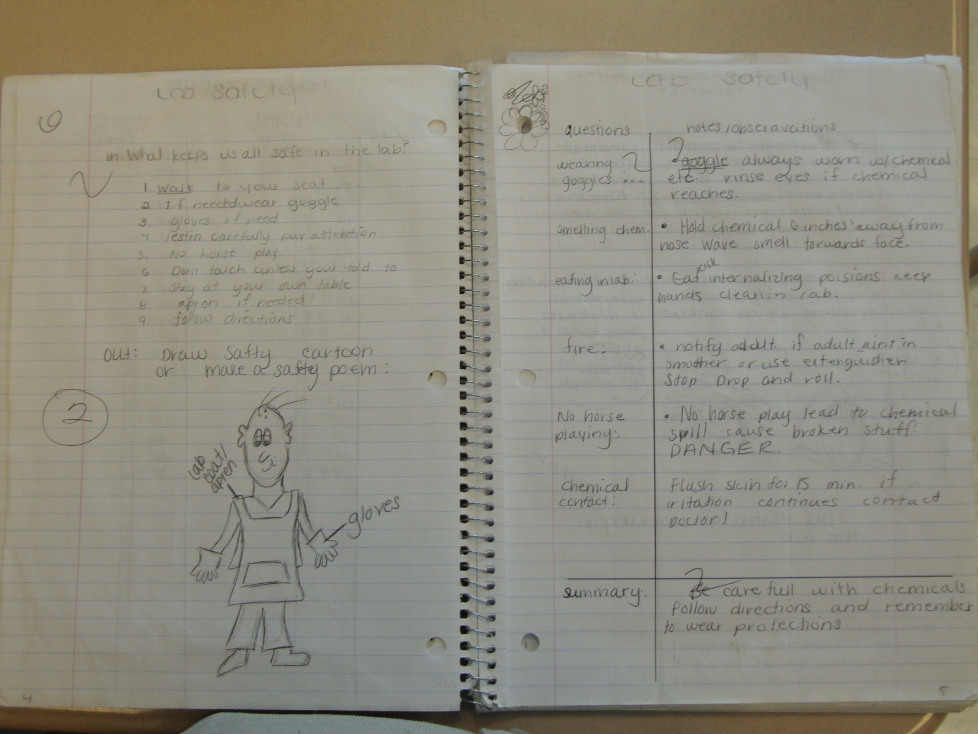 Lab Safety
in: What keeps us all safe in the lab?
1. Walk to your seat
2. If needed wear goggle
3. gloves if need
4. lestin carefully pay attention
5. No horse play
6. Don't touch unless your told to
7. Stay at your own table
8. apron if needed
9. follow directions
Out: Draw Safty cartoon
or make a safty poem:
2
lab
coat/
apren
gloves
4
Lab Safety
questions
notes/obseravations
wearing
goggles ....
goggle always worn w/chemical
etc. rinse eyes if chemical
reaches.
Smelling chem:
• Hold chemical 6 inches away from
nose wave smell torwards face.
eating in lab:
• Eat risk internalizing poisions keep
hands clean in lab.
fire:
• notify adult if adult aint in
smother or use extenguisher.
Stop Drop and roll.
No horse
playing:
• No horse play lead to chemical
spill cause broken stuff.
DANGER.
Chemical
contact:
Flush skin for 15 min. if
irritation continues contact
Doctor!
summary:
Be carefull with chemicals
follow directions and remember
to wear protections.
5